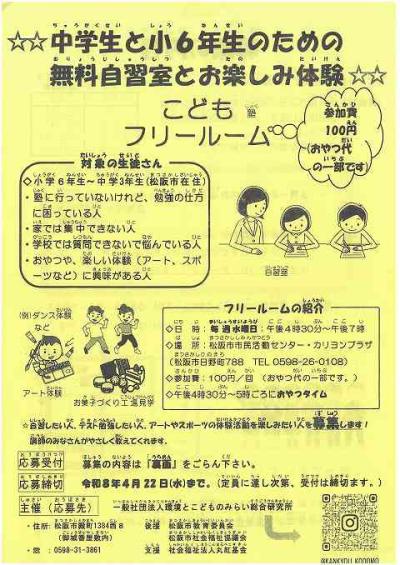 ☆☆中学生と小６年生のための
無料自習室とお楽しみ体験☆☆
こども塾
フリールーム
参加費
100円
(おやつ代
の一部です)
対象の生徒さん
◇小学6年生～中学3年生(松阪市在住)
・塾に行っていないけれど、勉強の仕方
に困っている人
・家では集中できない人
・学校では質問できないで悩んでいる人
・おやつや、楽しい体験（アート、スポ
ーツなど）に興味がある人
自習室
(例)ダンス体験
など
アート体験
お菓子づくり工場見学
フリールームの紹介
◇日時：毎週水曜日：午後4時30分～午後7時
◇場所：松阪市市民活動センター・カリヨンプラザ
(松阪市日野町788 TEL 0598-26-0108)
◇参加費：100円／1回 （おやつ代の一部です。）
◇午後4時30分～5時ごろにおやつタイム
☆自習したい人、テスト勉強したい人、アートやスポーツの体験活動を楽しみたい人を募集します！
講師のみなさんがやさしく教えてくれます。
応募受付 募集の内容は「裏面」をごらん下さい。
応募締切 令和8年4月22日(水)まで。(定員に達し次第、受付は締切ます。)
主催（応募先） 一般社団法人環境とこどものみらい総合研究所
・住所：松阪市殿町1384西8 後援 松阪市教育委員会
(御城番屋敷内) 松阪市社会福祉協議会
・☎： 0598-31-3861 支援 社会福祉法人丸紅基金
@KANKYOU_KODOMO